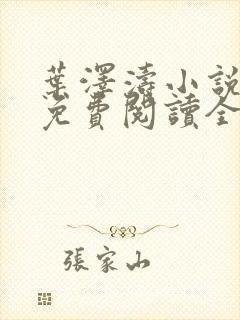 葉澤濤小說
免費閱讀全
張家山